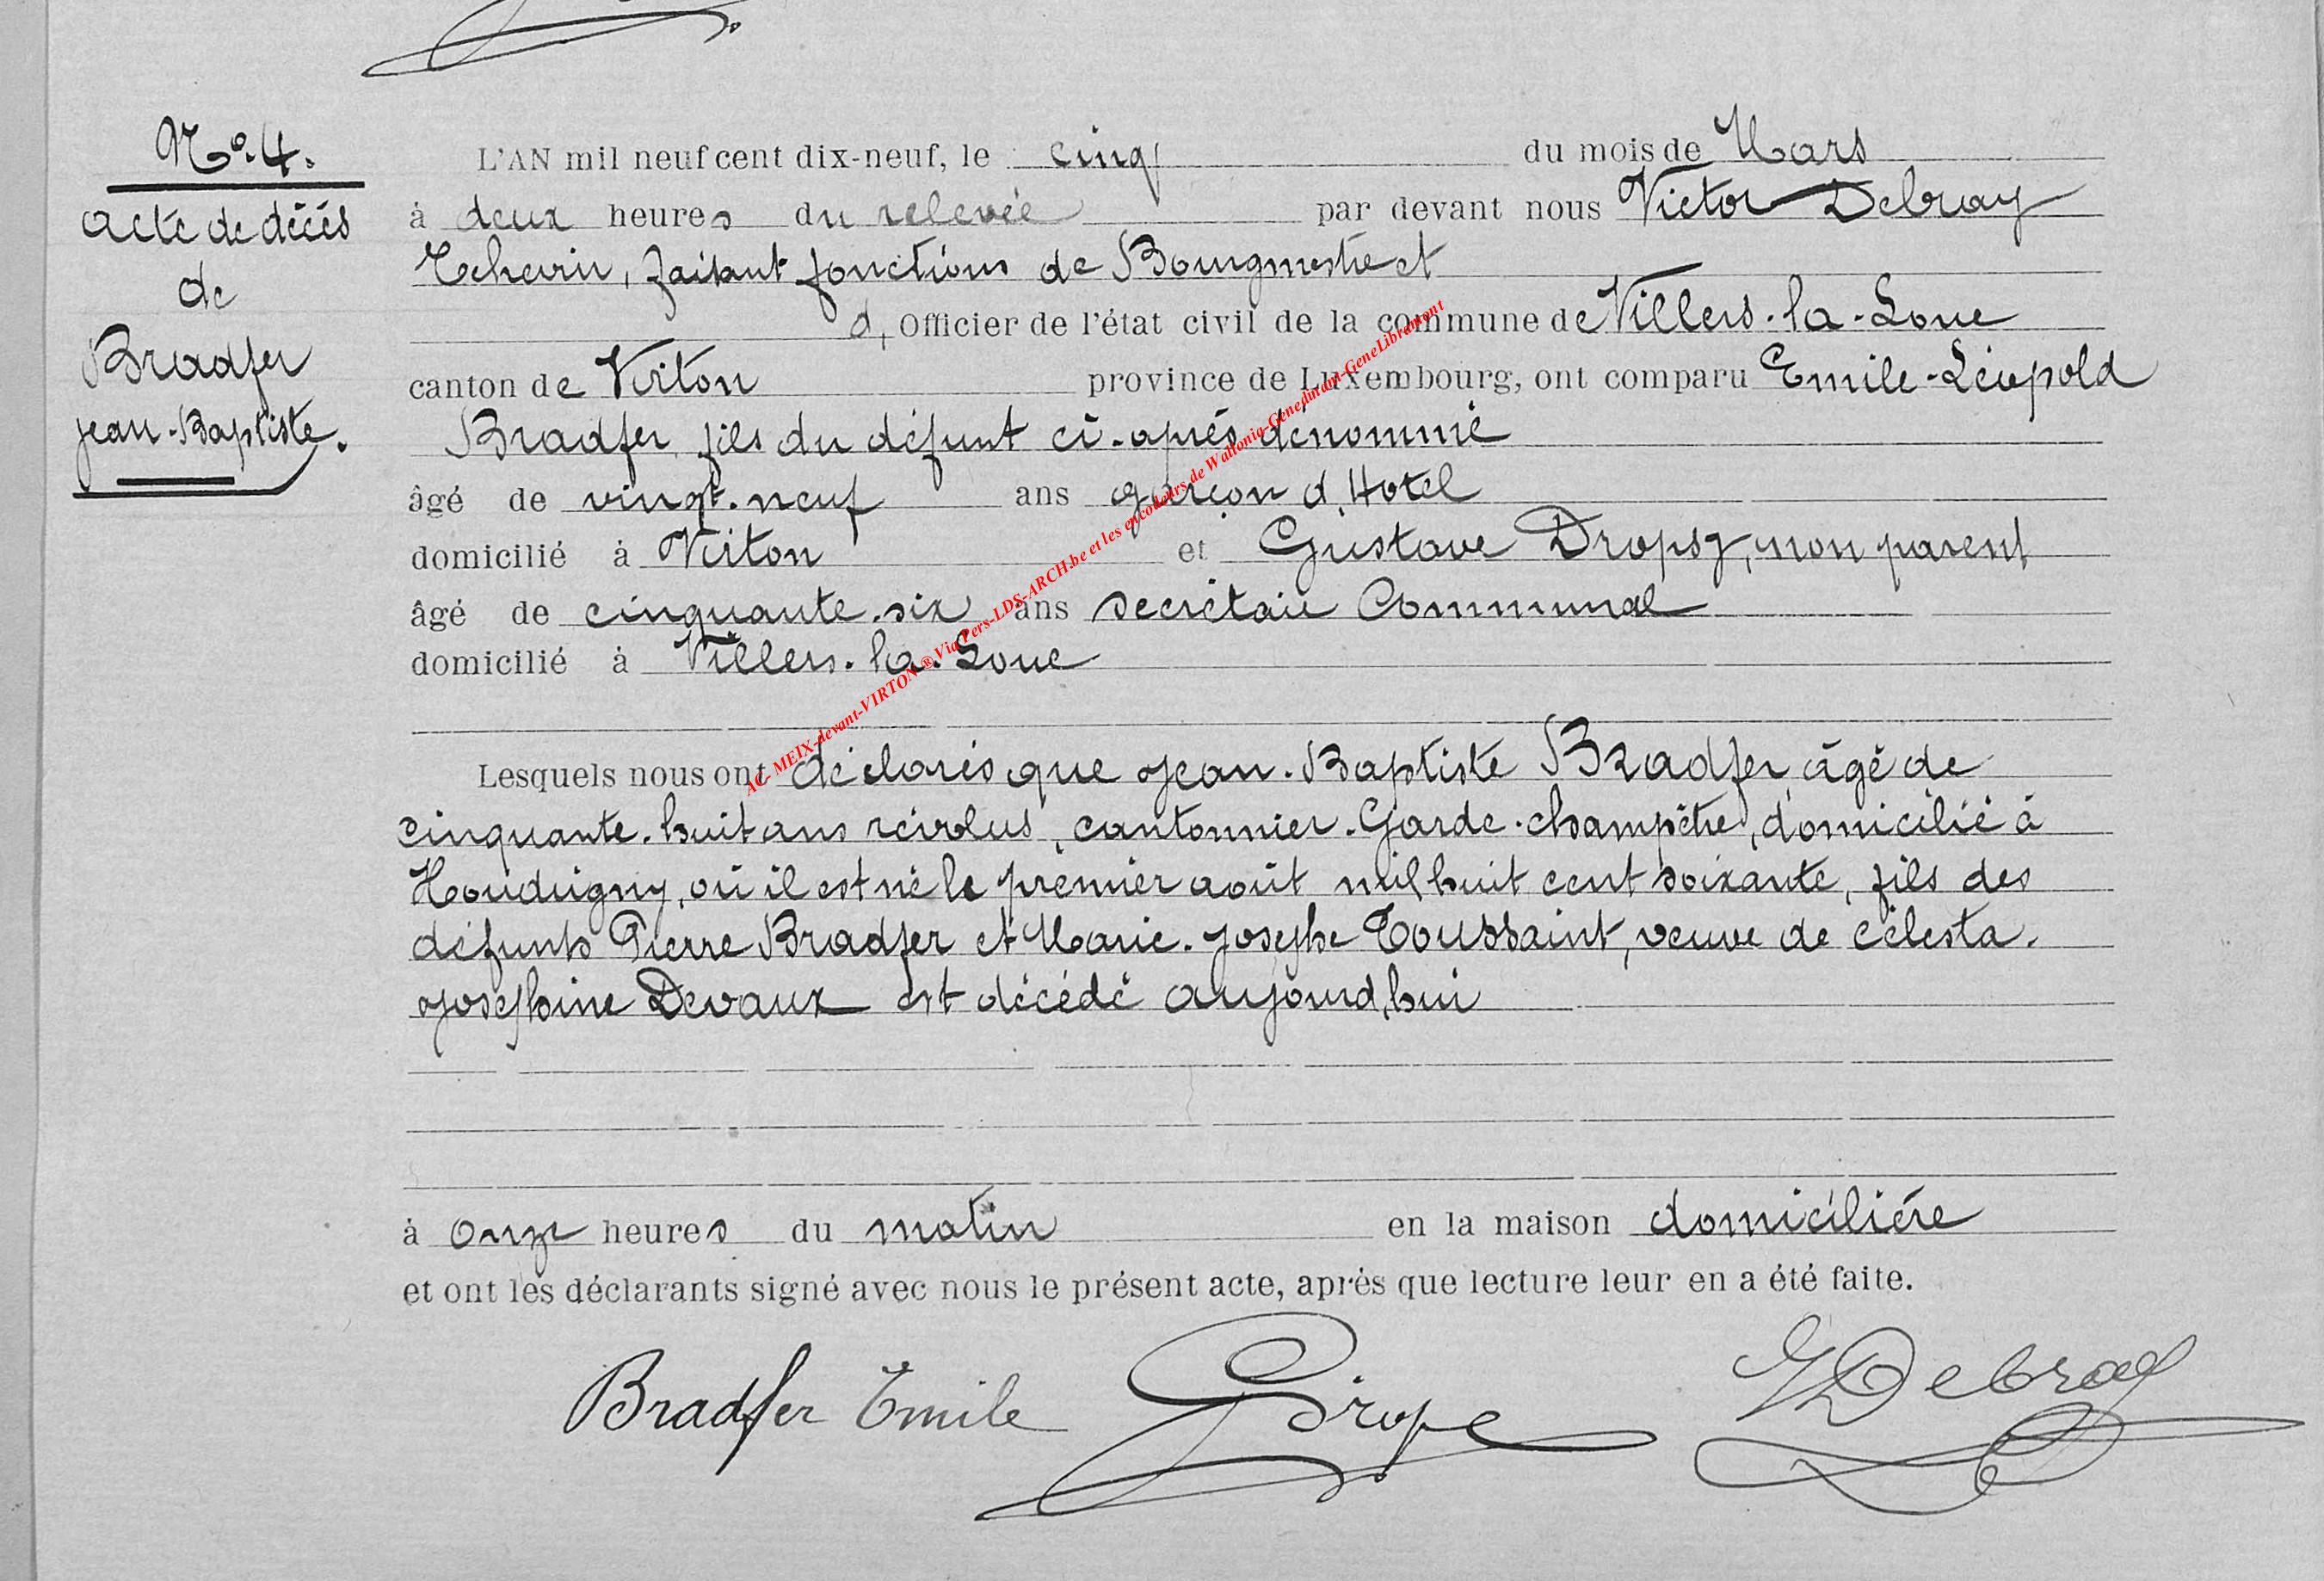 N° 4.
Acte de décès
de
Bradfer
Jean-Baptiste.
L'AN mil neuf cent dix-neuf, le cinq du mois de Mars
à deux heures du relevée par devant nous Victor Debray
Echevin, faisant fonctions de Bourgmestre et
d, Officier de l'état civil de la commune de Villers-la-Loue
canton de Virton province de Luxembourg, ont comparu Emile-Léopold
Bradfer, fils du défunt ci-après dénommé
âgé de vingt-neuf ans garçon d'Hotel
domicilié à Virton et Gustave Dropsy, non parent
âgé de cinquante-six ans secrétaire Communal
domicilié à Villers-la-Loue
Lesquels nous ont déclarés que Jean-Baptiste Bradfer, âgé de
cinquante-huit ans révolus, cantonnier-Garde-champêtre, domicilié à
Houdrigny, où il est né le premier août mil huit cent soixante, fils des
défunts Pierre Bradfer et Marie-Josephe Toussaint, veuve de Célesta-
Josephine Devaux est décédé aujourd'hui
à onze heures du matin en la maison domicilière
et ont les déclarants signé avec nous le présent acte, après que lecture leur en a été faite.
Bradfer Emile VDebray
AC- MEIX-devant-VIRTON-® Via Pers-LDS-ARCH.be et les encodeurs de Wallonia-Genedinant-GeneLibramont